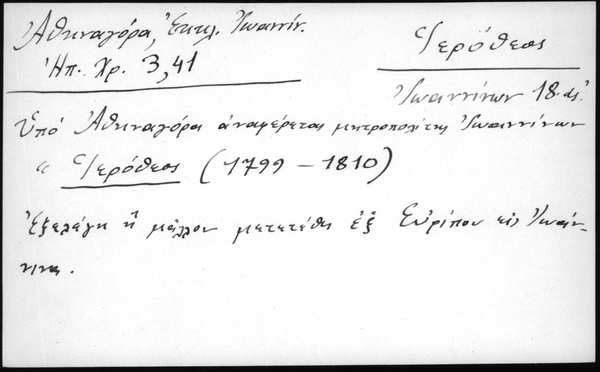 Ἀθηναγόρα, Ἐκκλ. Ἰωαννίν.
Ἠπ. Χρ. 3,41
Ἱερόθεος
Ἰωαννίνων 18. αἰ.
Ὑπό Ἀθηναγόρα ἀναφέρεται μητροπολίτης Ἰωαννίνων
" Ἱερόθεος (1799 - 1810)
Ἐξελέγη ἤ μᾶλλον μετετέθη ἐξ Εὐρίπου εἰς Ἰωάν-
νινα.